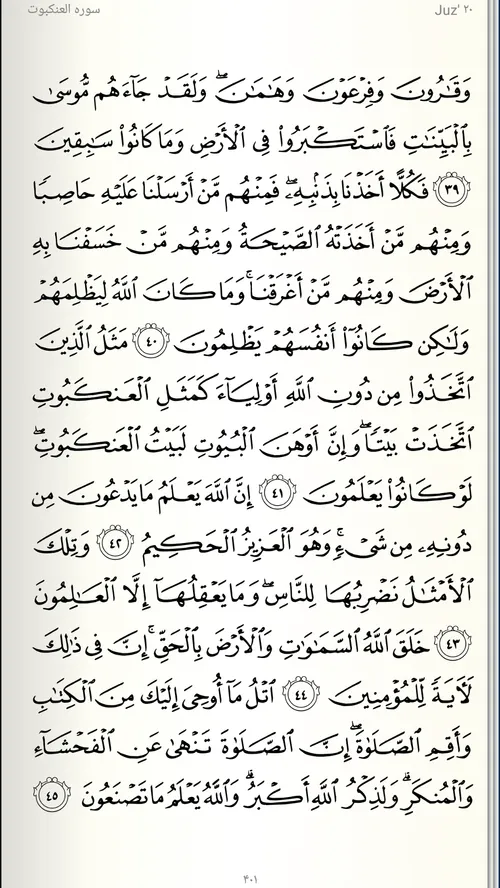 سوره العنكبوت
Juz' ٢٠
وَقَٰرُونَ وَفِرْعَوْنَ وَهَٰمَٰنَ ۖ وَلَقَدْ جَآءَهُم مُّوسَىٰ
بِٱلْبَيِّنَٰتِ فَٱسْتَكْبَرُوا۟ فِى ٱلْأَرْضِ وَمَا كَانُوا۟ سَٰبِقِينَ
٣٩ فَكُلًّا أَخَذْنَا بِذَنۢبِهِۦ ۖ فَمِنْهُم مَّنْ أَرْسَلْنَا عَلَيْهِ حَاصِبًا
وَمِنْهُم مَّنْ أَخَذَتْهُ ٱلصَّيْحَةُ وَمِنْهُم مَّنْ خَسَفْنَا بِهِ
ٱلْأَرْضَ وَمِنْهُم مَّنْ أَغْرَقْنَا ۚ وَمَا كَانَ ٱللَّهُ لِيَظْلِمَهُمْ
وَلَٰكِن كَانُوٓا۟ أَنفُسَهُمْ يَظْلِمُونَ ٤٠ مَثَلُ ٱلَّذِينَ
ٱتَّخَذُوا۟ مِن دُونِ ٱللَّهِ أَوْلِيَآءَ كَمَثَلِ ٱلْعَنكَبُوتِ
ٱتَّخَذَتْ بَيْتًا ۖ وَإِنَّ أَوْهَنَ ٱلْبُيُوتِ لَبَيْتُ ٱلْعَنكَبُوتِ ۖ
لَوْ كَانُوا۟ يَعْلَمُونَ ٤١ إِنَّ ٱللَّهَ يَعْلَمُ مَا يَدْعُونَ مِن
دُونِهِۦ مِن شَىْءٍ ۚ وَهُوَ ٱلْعَزِيزُ ٱلْحَكِيمُ ٤٢ وَتِلْكَ
ٱلْأَمْثَٰلُ نَضْرِبُهَا لِلنَّاسِ ۖ وَمَا يَعْقِلُهَآ إِلَّا ٱلْعَٰلِمُونَ
٤٣ خَلَقَ ٱللَّهُ ٱلسَّمَٰوَٰتِ وَٱلْأَرْضَ بِٱلْحَقِّ ۚ إِنَّ فِى ذَٰلِكَ
لَءَايَةً لِّلْمُؤْمِنِينَ ٤٤ ٱتْلُ مَآ أُوحِىَ إِلَيْكَ مِنَ ٱلْكِتَٰبِ
وَأَقِمِ ٱلصَّلَوٰةَ ۖ إِنَّ ٱلصَّلَوٰةَ تَنْهَىٰ عَنِ ٱلْفَحْشَآءِ
وَٱلْمُنكَرِ ۗ وَلَذِكْرُ ٱللَّهِ أَكْبَرُ ۗ وَٱللَّهُ يَعْلَمُ مَا تَصْنَعُونَ ٤٥
۴۰۱